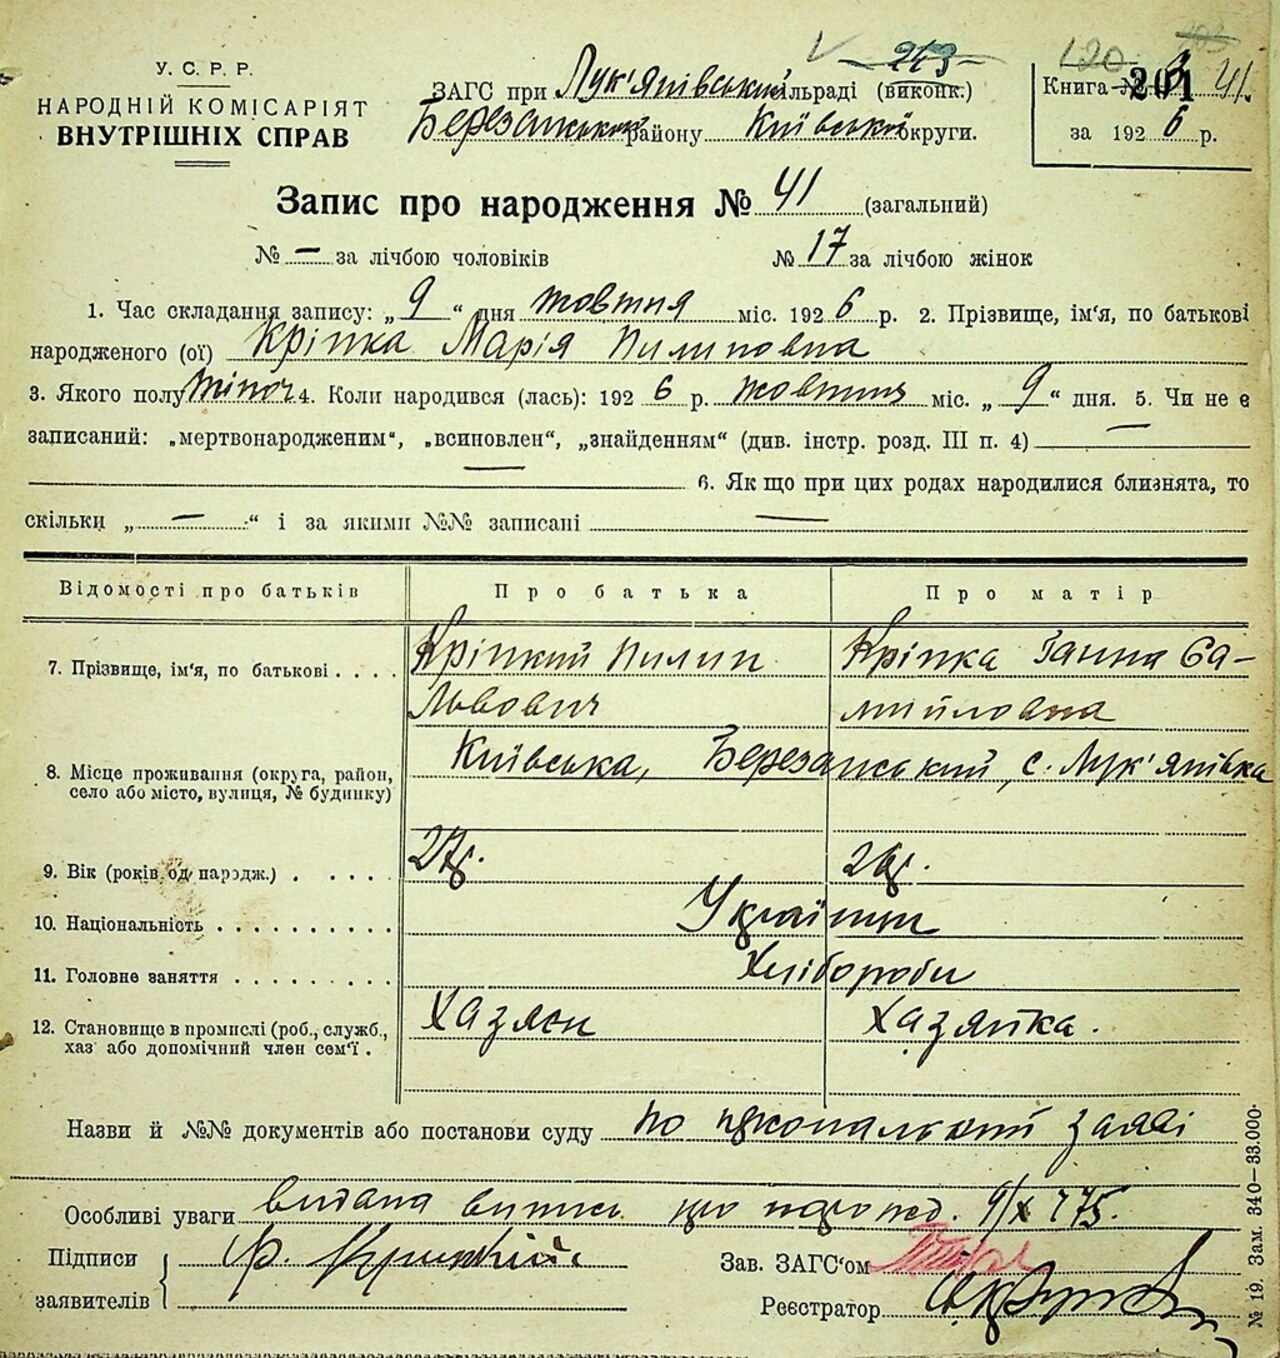 У. С. Р. Р.
НАРОДНІЙ КОМІСАРІЯТ
ВНУТРІШНІХ СПРАВ
ЗАГС при Лук'янівський сільраді (виконк.)
Березанського району Київської округи.
213
120
Книга № 3 201 41
за 1926 р.
Запис про народження № 41 (загальний)
№ — за лічбою чоловіків № 17 за лічбою жінок
1. Час складання запису: „9“ дня жовтня міс. 1926 р. 2. Прізвище, ім'я, по батькові
народженого (ої) Кріпка Марія Пилиповна
3. Якого полу жіноч 4. Коли народився (лась): 1926 р. жовтня міс. „9“ дня. 5. Чи не є
записаний: „мертвонародженим“, „всиновлен“, „знайденням“ (див. інстр. розд. III п. 4) —
— 6. Як що при цих родах народилися близнята, то
скільки „—“ і за якими №№ записані —
Відомості про батьків Про батька Про матір
7. Прізвище, ім'я, по батькові . . . . Кріпкий Пилип Кріпка Ганна Са-
Львович мийловна
8. Місце проживання (округа, район, Київська, Березанський, с. Лук'янівка
село або місто, вулиця, № будинку)
9. Вік (років од народж.) . . . . 27р. 26р.
10. Національність . . . . . . . . . . Українці
11. Головне заняття . . . . . . . . . Хлібороби
12. Становище в промислі (роб., служб., Хазяєн Хазяйка.
хаз або допомічний член сем'ї .
Назви й №№ документів або постанови суду по заяві
Особливі уваги видана випис про народ. 9/X 775.
Підписи
заявителів
Зав. ЗАГС'ом
Реєстратор
№ 19. Зам. 340—33.000.